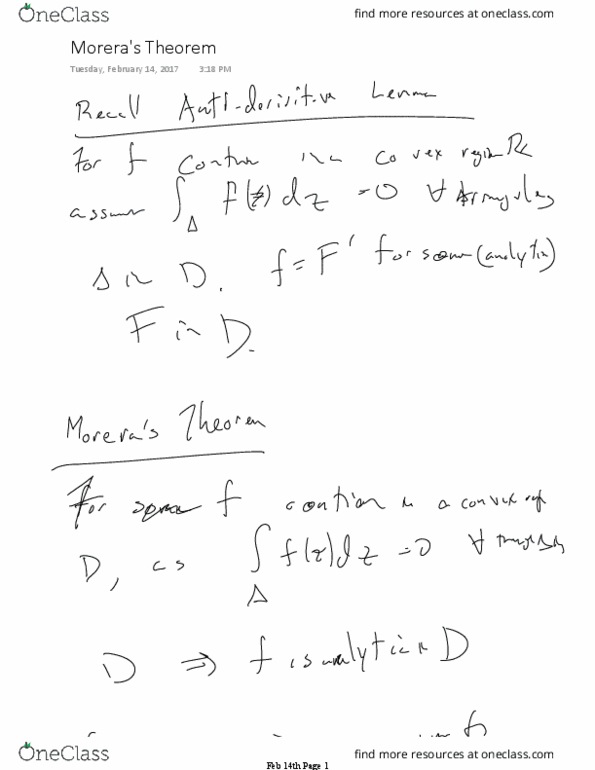 OneClass
find more resources at oneclass.com
Morera's Theorem
Tuesday, February 14, 2017 3:18 PM
Recall Anti-derivitive Lemma
For f contin in a convex region
assume ∫_Δ f(z)dz = 0 ∀ triangles
Δ in D. f = F' for some (analytic)
F in D.
Morera's Theorem
f contion in a convex
D, as ∫_Δ f(z)dz = 0 ∀
D ⇒ f is analytic in D
OneClass
find more resources at oneclass.com
Feb 14th Page 1